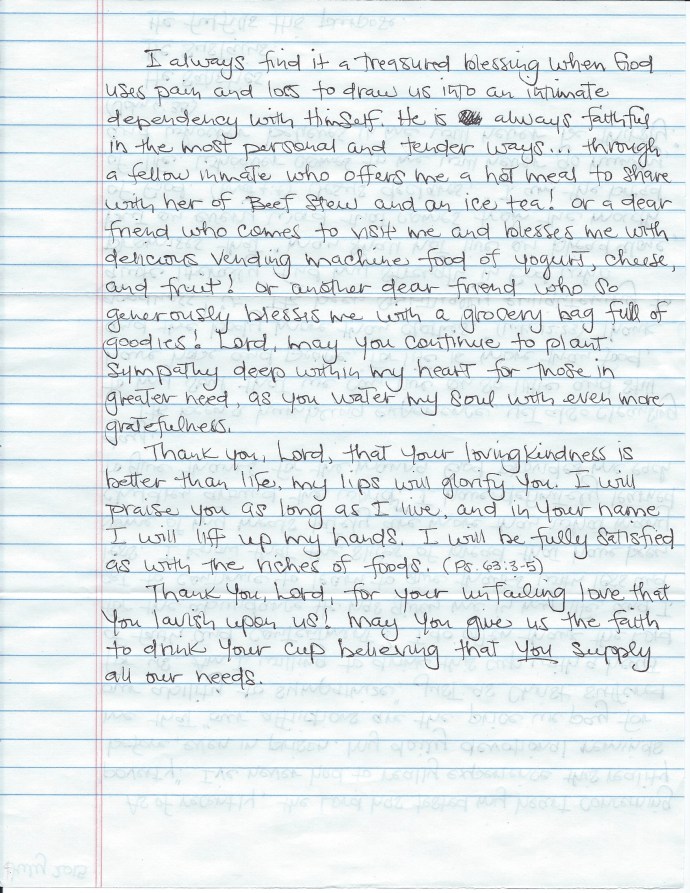 I always find it a treasured blessing when God
uses pain and loss to draw us into an intimate
dependency with Himself. He is always faithful
in the most personal and tender ways... through
a fellow inmate who offers me a hot meal to share
with her of Beef Stew and an ice tea! Or a dear
friend who comes to visit me and blesses me with
delicious vending machine food of yogurt, cheese,
and fruit! Or another dear friend who so
generously blesses me with a grocery bag full of
goodies! Lord, may you continue to plant
sympathy deep within my heart for those in
greater need, as you water my soul with even more
gratefulness.
Thank you, Lord, that your lovingkindness is
better than life, my lips will glorify You. I will
praise you as long as I live, and in Your name
I will lift up my hands. I will be fully satisfied
as with the riches of foods. (Ps. 63:3-5)
Thank You, Lord, for your unfailing love that
You lavish upon us! May You give us the faith
to drink Your cup believing that You supply
all our needs.